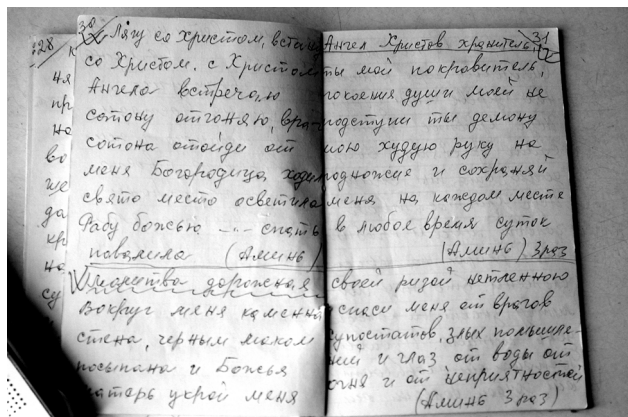 28
30
Лягу со Христом, встану
со Христом. с Христом
Ангела встречаю
сотону отгоняю, враг
сотона отойди от
меня Богородица ходи
свято место осветила
Рабу божью --- спать
повалила (Аминь)
Молитва дорожная
Вокруг меня каменн
стена, черным маком
посыпана и Божья
матерь укрой меня
31
Ангел Христов хранитель,
ты мой покровитель,
покоения души моей не
подступи ты демону
мою худую руку на
подножие и сохраняй
меня на каждом месте
в любое время суток
(Аминь) 3 раз
своей ризой нетленною
спаси меня от врагов
супостатов, злых помышле-
ний и глаз от воды от
огня и от неприятностей
(Аминь 3 раз)